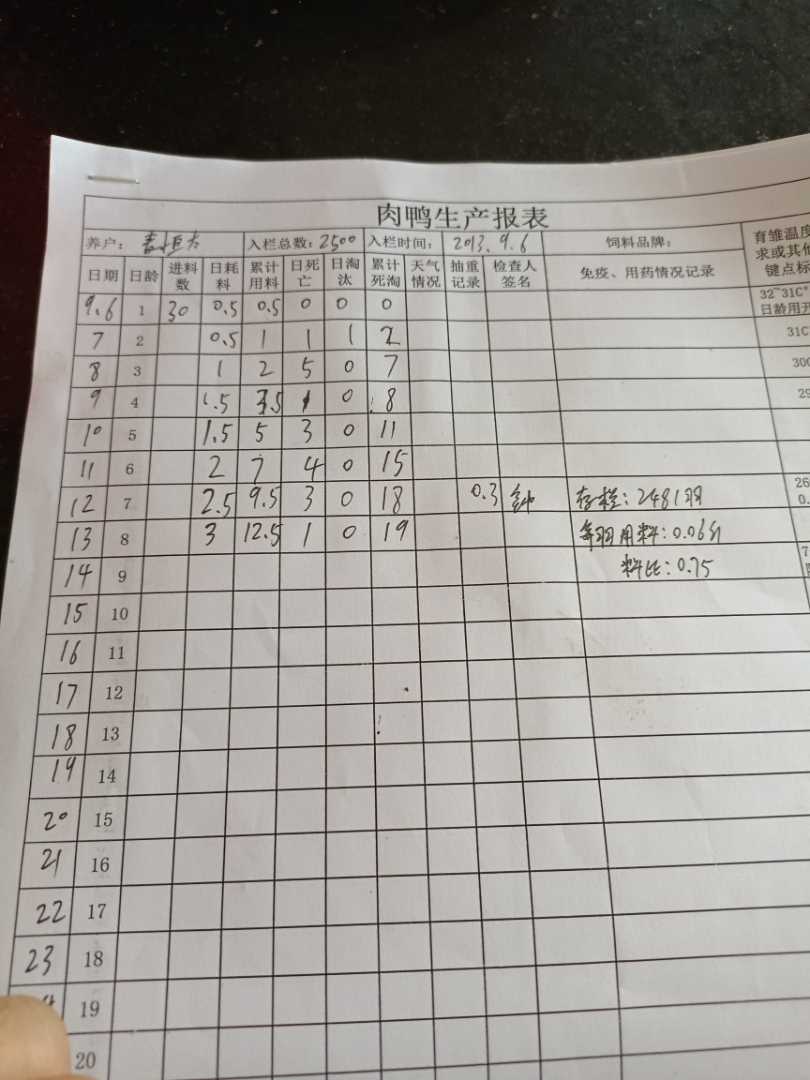 肉鸭生产报表
养户： 入栏总数：2500 入栏时间： 2013.9.6 饲料品牌： 育雏温度
求或其他
键点标
日期 日龄 进料数 日耗料 累计用料 日死亡 日淘汰 累计死淘 天气情况 抽重记录 检查人签名 免疫、用药情况记录
9.6 1 30 0.5 0.5 0 0 0 32~31C°
日龄用开
7 2 0.5 1 1 1 2 31C
8 3 1 2 5 0 7 30
9 4 1.5 3.5 1 0 8 29
10 5 1.5 5 3 0 11
11 6 2 7 4 0 15
12 7 2.5 9.5 3 0 18 0.3 存栏：2481羽 26
0.
13 8 3 12.5 1 0 19 每羽用料：0.06斤
14 9 料比：0.75 7
15 10
16 11
17 12
18 13
19 14
20 15
21 16
22 17
23 18
19
20